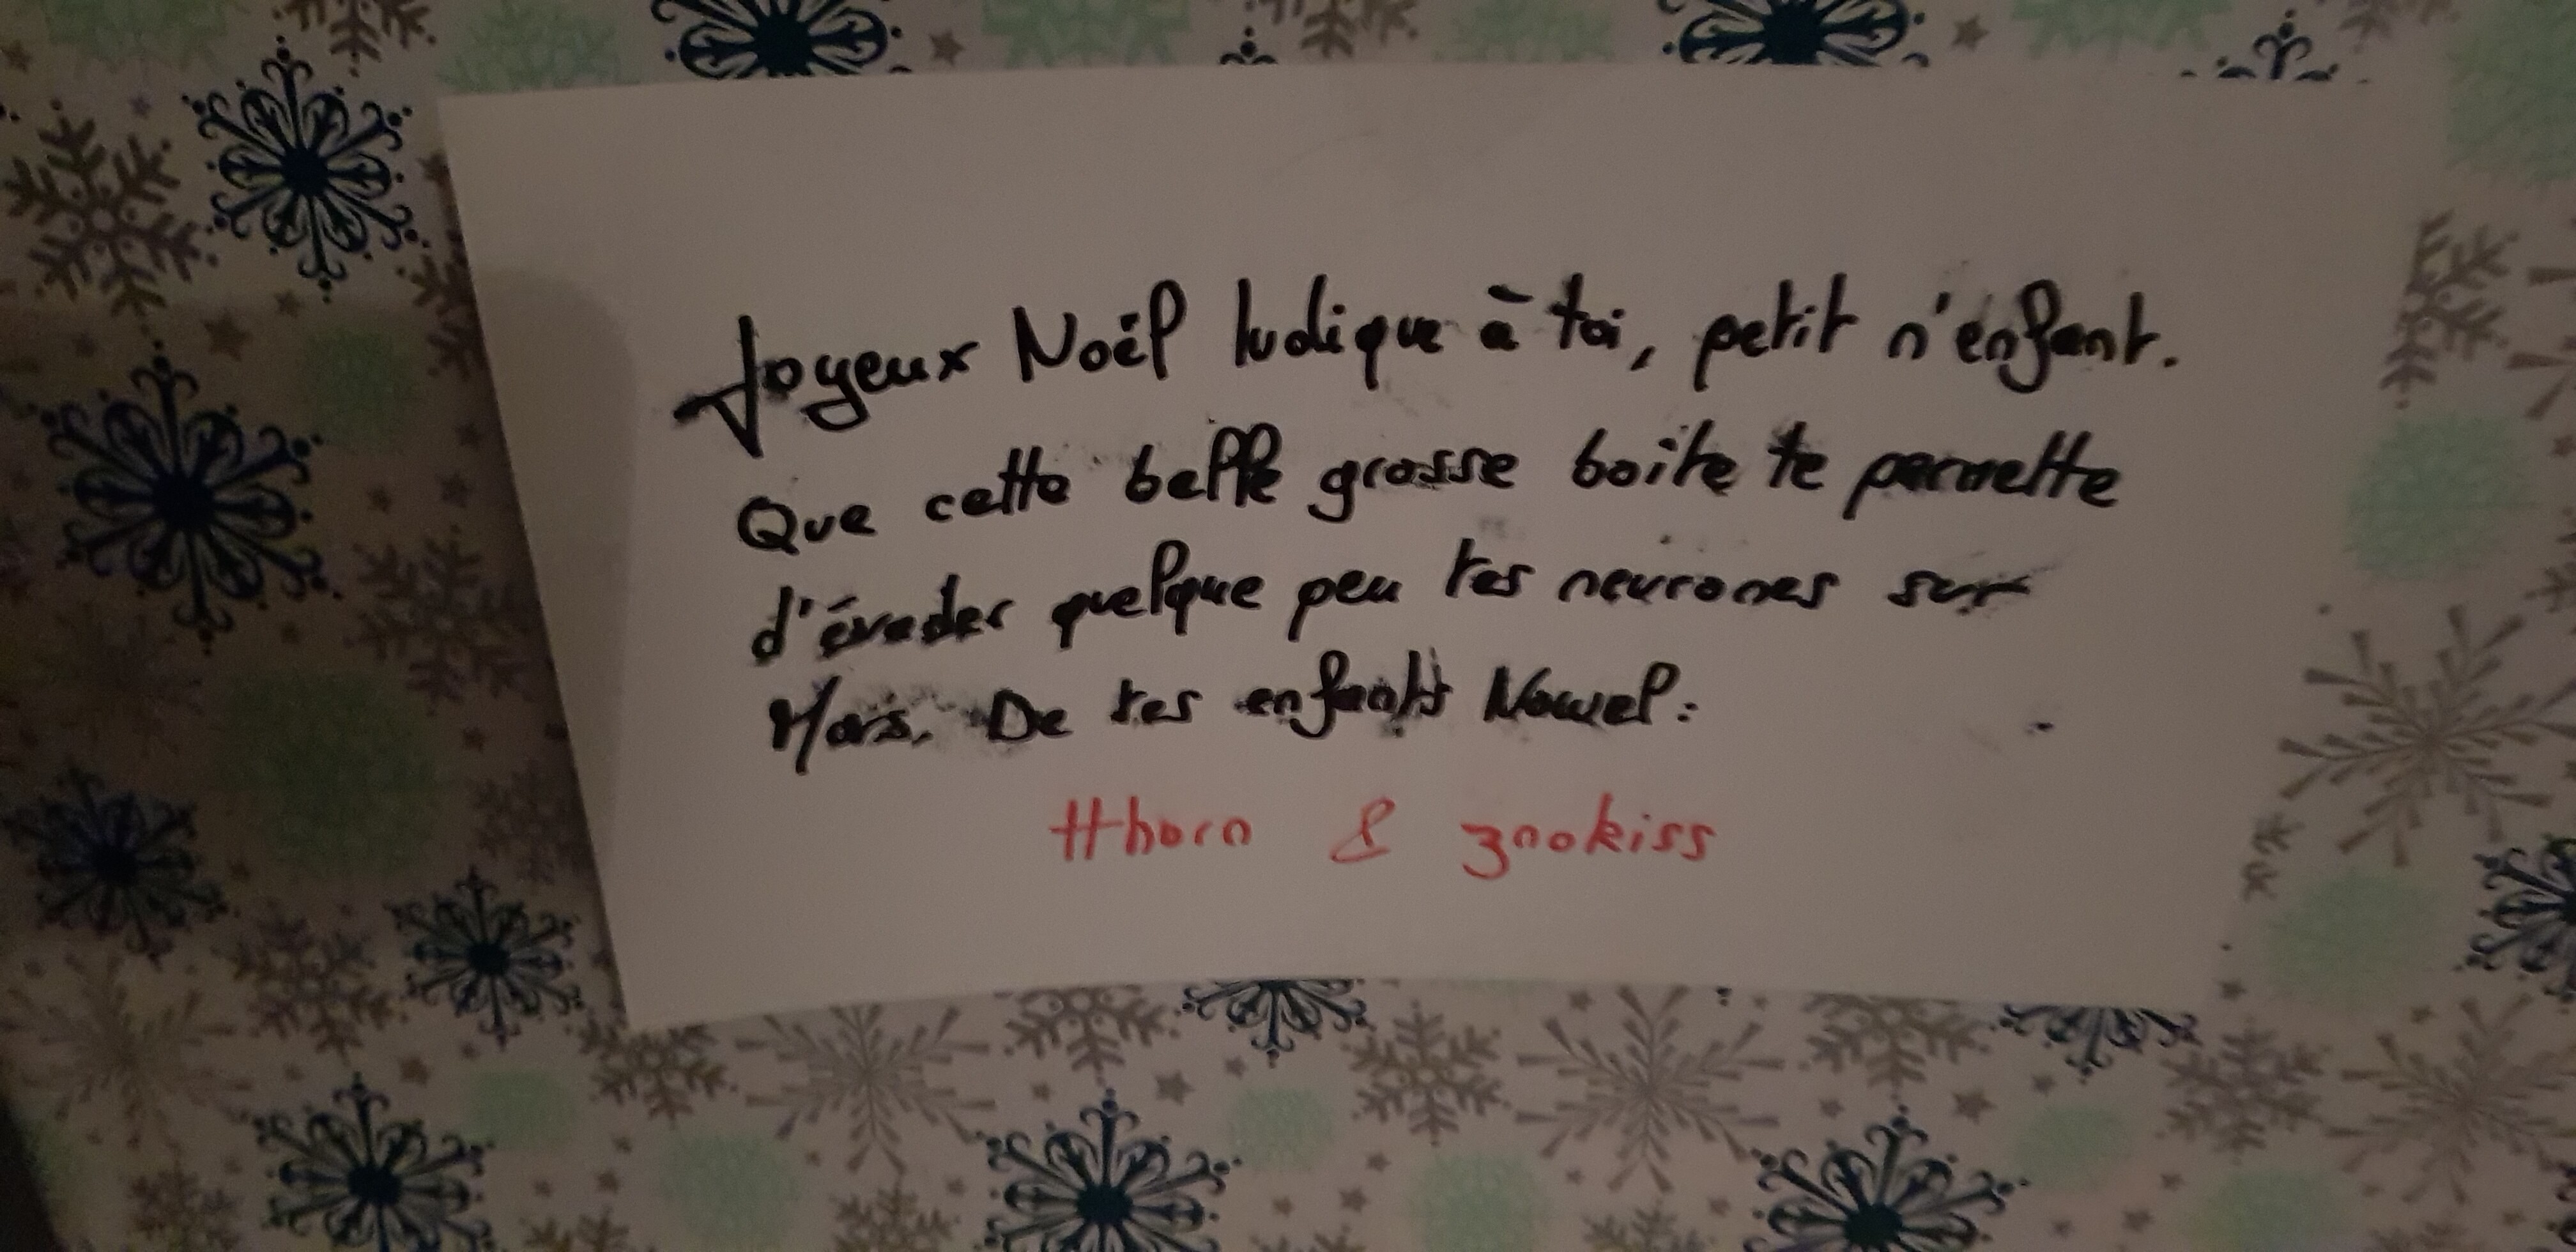 Joyeux Noël ludique à toi, petit n'enfant.
Que cette belle grosse boîte te permette
d'évader quelque peu tes neurones sur
Mars. De tes enfants Nowel :
tthorn & znokiss